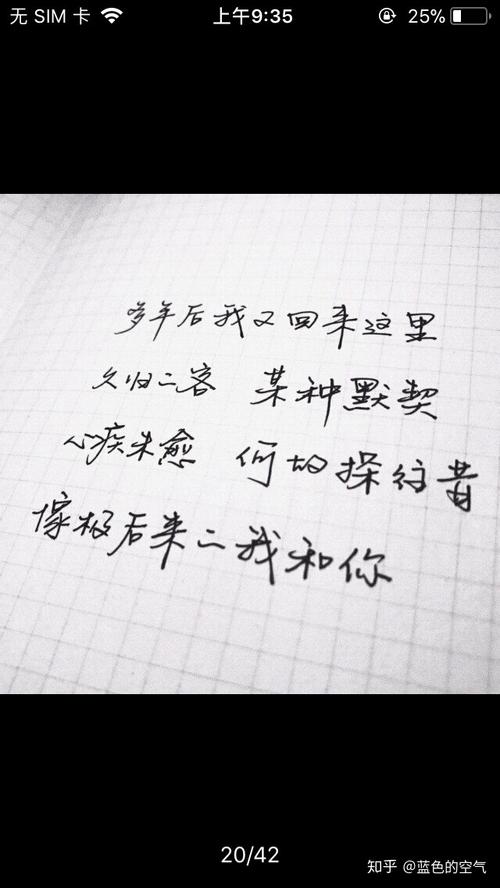 无 SIM 卡 上午9:35 25%
多年后我又回来这里
久归之客 某种默契
心疾未愈 何 探往昔
像极后来之我和你
20/42
知乎 @蓝色的空气